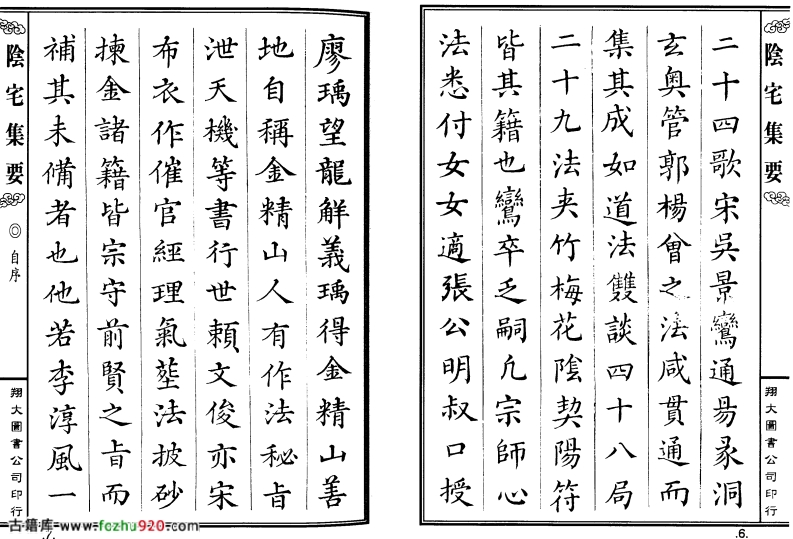 陰宅集要
翔大圖書公司印行
二十四歌宋吳景鸞通昜彖洞
玄奥管郭楊曾之法咸貫通而
集其成如道法雙談四十八局
二十九法夹竹梅花陰契陽符
皆其籍也鸞卒乏嗣凢宗師心
法悉付女女適張公明叔口授
.6.
廖瑀望龍解義瑀得金精山善
地自稱金精山人有作法秘旨
泄天機等書行世頼文俊亦宋
布衣作催官經理氣塟法披砂
揀金諸籍皆宗守前賢之旨而
補其未備者也他若李淳風一
陰宅集要
◎自序
翔大圖書公司印行
.7.
古籍库 www.fozhu920.com